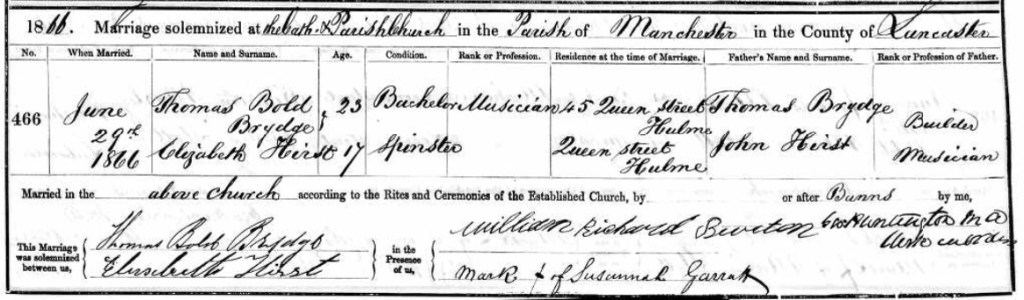 1866. Marriage solemnized at the Cath. & Parish Church in the Parish of Manchester in the County of Lancaster
No. When Married. Name and Surname. Age. Condition. Rank or Profession. Residence at the time of Marriage. Father's Name and Surname. Rank or Profession of Father.
466 June 29th 1866 Thomas Bold Brydge 23 Bachelor Musician 45 Queen Street Hulme Thomas Brydge Builder
Elizabeth Hirst 17 Spinster Queen Street Hulme John Hirst Musician
Married in the above church according to the Rites and Ceremonies of the Established Church, by or after Banns by me,
This Marriage was solemnized between us, Thomas Bold Brydge Elizabeth Hirst in the Presence of us, William Richard
Mark + of Susannah Garratt
Geo Huntington M A